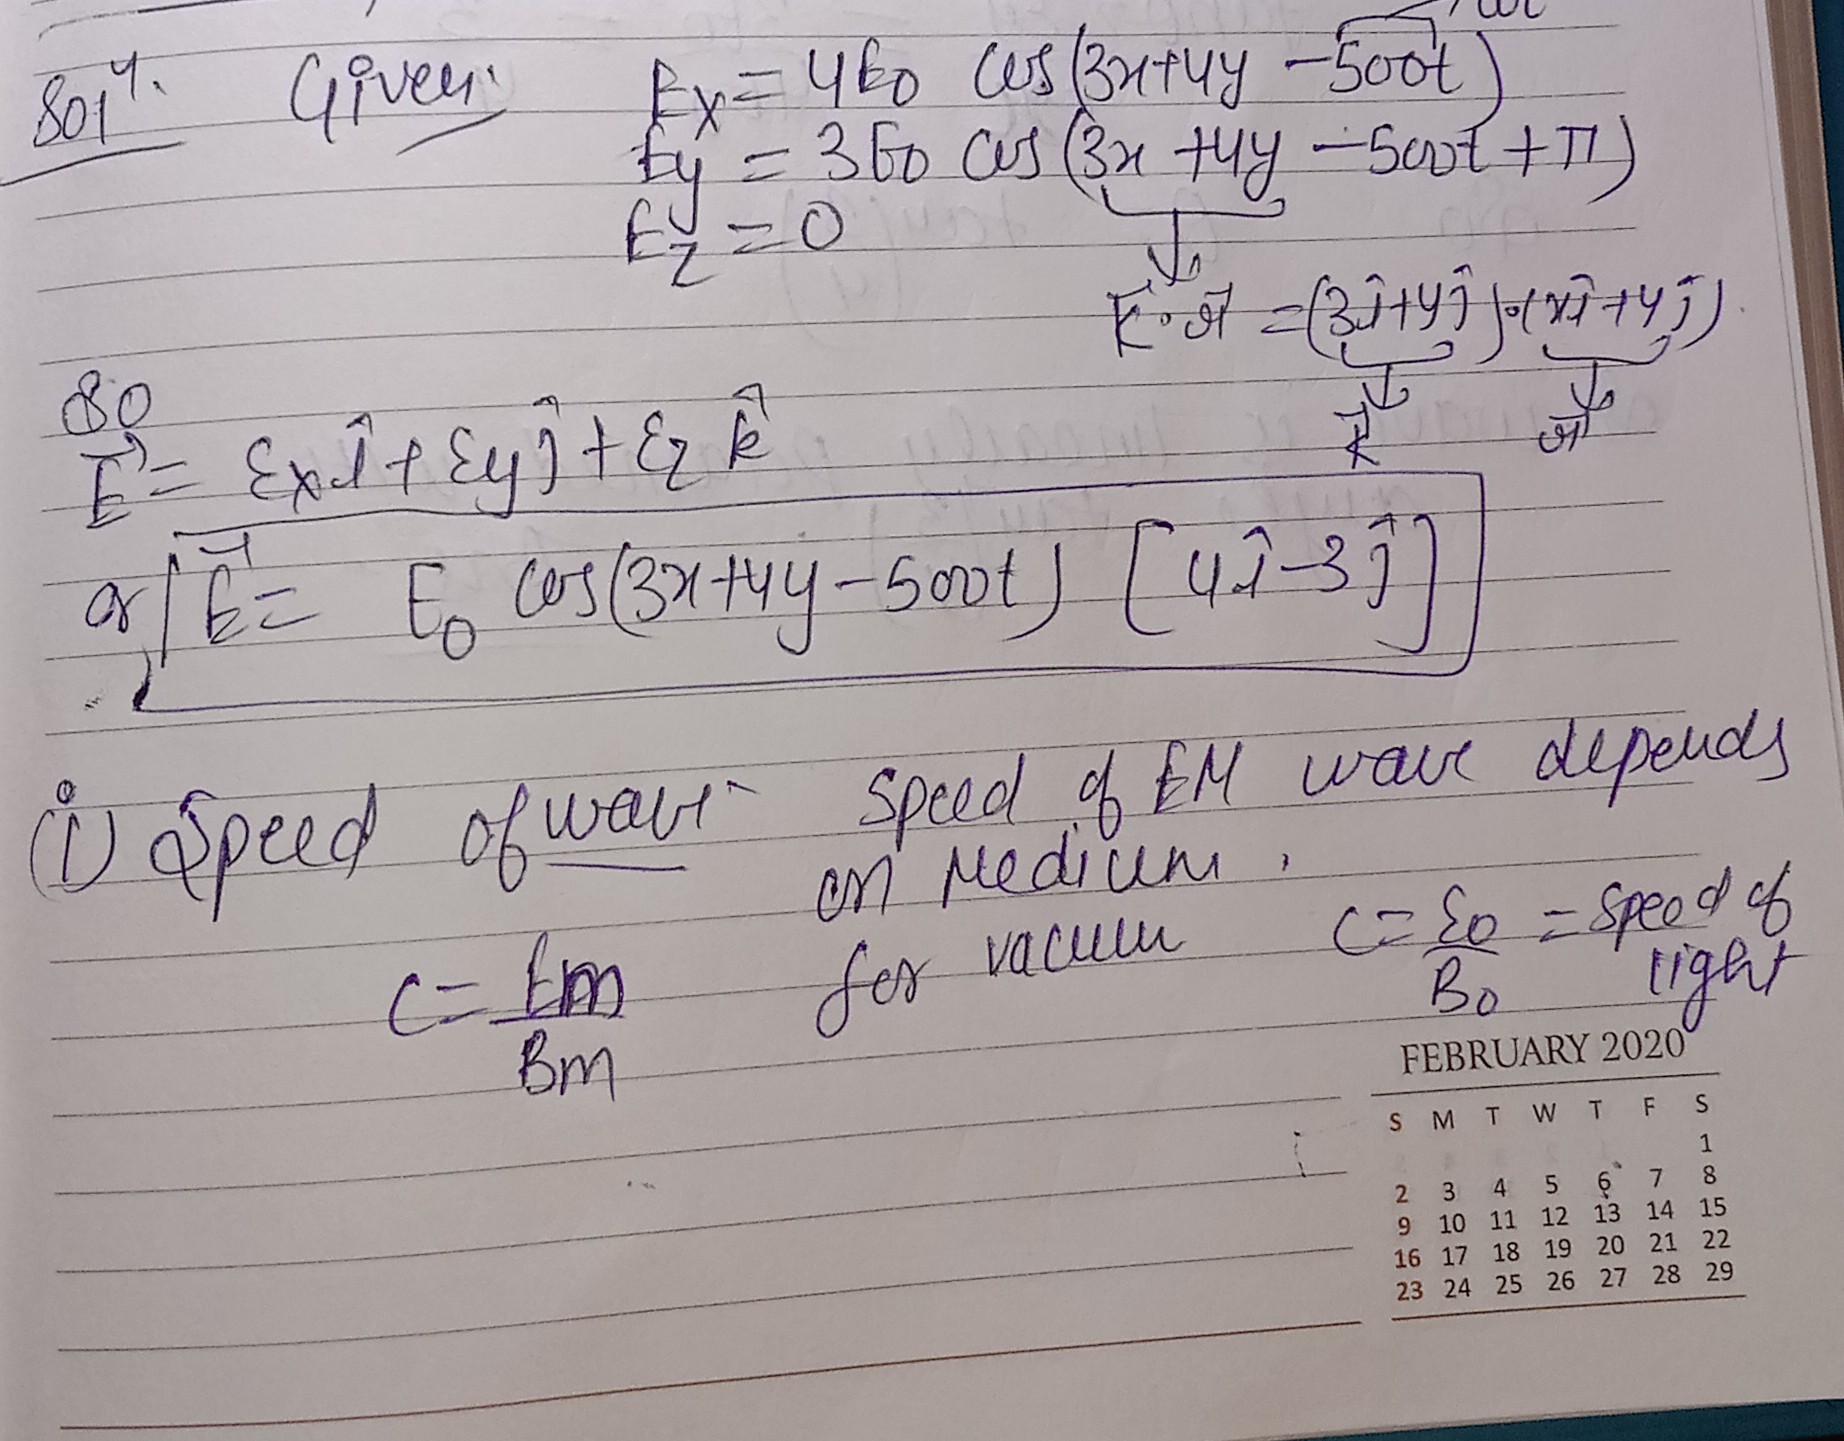 ωt
Solⁿ. Given: Ex = 4E0 cos(3x+4y -500t)
Ey = 3E0 cos(3x +4y -500t +π)
Ez = 0
k⃗·r⃗ = (3î+4ĵ)·(xî+yĵ).
k⃗ r⃗
So
E⃗ = Exî + Eyĵ + Ez k̂
or E⃗ = E0 cos(3x+4y-500t) [4î-3ĵ]
(i) Speed of wave- Speed of EM wave depends
on Medium.
C = Em/Bm for vacuum C = E0/B0 = speed of
light
FEBRUARY 2020
S M T W T F S
1
2 3 4 5 6 7 8
9 10 11 12 13 14 15
16 17 18 19 20 21 22
23 24 25 26 27 28 29